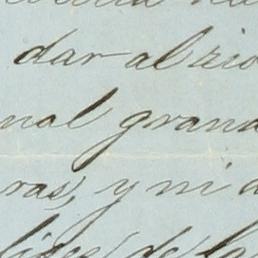 dar al rio
nal grand
ras, y mi a
de la